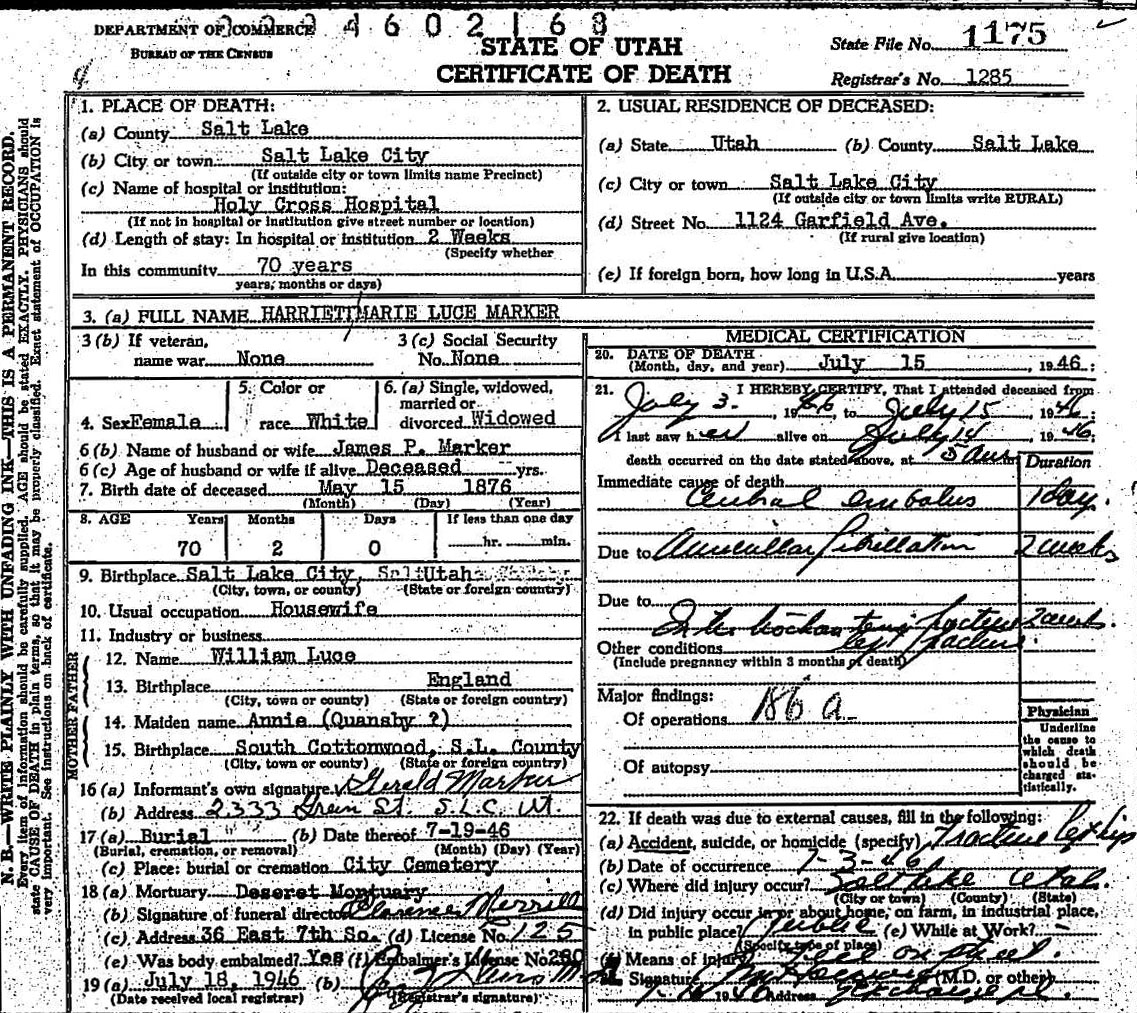 4602168
DEPARTMENT OF COMMERCE
BUREAU OF THE CENSUS
STATE OF UTAH
CERTIFICATE OF DEATH
State File No. 1175
Registrar's No. 1285
N. B.—WRITE PLAINLY WITH UNFADING INK—THIS IS A PERMANENT RECORD.
Every item of information should be carefully supplied. AGE should be stated EXACTLY. PHYSICIANS should
state CAUSE OF DEATH in plain terms, so that it may be properly classified. Exact statement of OCCUPATION is
very important. See instructions on back of certificate.
1. PLACE OF DEATH:
(a) County Salt Lake
(b) City or town Salt Lake City
(If outside city or town limits name Precinct)
(c) Name of hospital or institution:
Holy Cross Hospital
(If not in hospital or institution give street number or location)
(d) Length of stay: In hospital or institution 2 Weeks
(Specify whether
In this community 70 years
years, months or days)
2. USUAL RESIDENCE OF DECEASED:
(a) State Utah (b) County Salt Lake
(c) City or town Salt Lake City
(If outside city or town limits write RURAL)
(d) Street No. 1124 Garfield Ave.
(If rural give location)
(e) If foreign born, how long in U.S.A. years
3. (a) FULL NAME HARRIETT MARIE LUCE MARKER
3 (b) If veteran, name war None
3 (c) Social Security No. None
4. Sex Female
5. Color or race White
6. (a) Single, widowed, married or divorced Widowed
6 (b) Name of husband or wife James P. Marker
6 (c) Age of husband or wife if alive Deceased yrs.
7. Birth date of deceased May 15 1876
(Month) (Day) (Year)
8. AGE Years Months Days If less than one day
70 2 0 hr. min.
9. Birthplace Salt Lake City, Utah
(City, town, or county) (State or foreign country)
10. Usual occupation Housewife
11. Industry or business
FATHER
12. Name William Luce
13. Birthplace England
(City, town or county) (State or foreign country)
MOTHER
14. Maiden name Annie (Quansby ?)
15. Birthplace South Cottonwood, S.L. County
(City, town or county) (State or foreign country)
16 (a) Informant's own signature Gerald Marker
(b) Address 2333 Green St. S.L.C. Ut.
17 (a) Burial (b) Date thereof 7-19-46
(Burial, cremation, or removal) (Month) (Day) (Year)
(c) Place: burial or cremation City Cemetery
18 (a) Mortuary Deseret Mortuary
(b) Signature of funeral director Clarence Merrill
(c) Address 36 East 7th So. (d) License No. 125
(e) Was body embalmed? Yes (f) Embalmer's License No. 260
19 (a) July 18, 1946 (b)
(Date received local registrar) (Registrar's signature)
MEDICAL CERTIFICATION
20. DATE OF DEATH
(Month, day, and year) July 15 , 1946;
21. I HEREBY CERTIFY, That I attended deceased from
July 3. , 1946, to July 15 1946;
I last saw her alive on July 14 , 1946;
death occurred on the date stated above, at 5 am
Duration
Immediate cause of death
embolus 1 day.
Due to Auricular fibrillation 2 weeks
Due to
fracture 2 weeks.
Other conditions
(Include pregnancy within 3 months of death)
Major findings:
Of operations 186 a
Of autopsy
Physician
Underline the cause to which death should be charged statistically.
22. If death was due to external causes, fill in the following:
(a) Accident, suicide, or homicide (specify) Fracture left hip
(b) Date of occurrence 7-3-46
(c) Where did injury occur? Salt Lake Utah.
(City or town) (County) (State)
(d) Did injury occur in or about home, on farm, in industrial place,
in public place? Public (e) While at Work? -
(Specify type of place)
(f) Means of injury Fell on street.
Signature (M.D. or other)
1946 Address Exchange Pl.